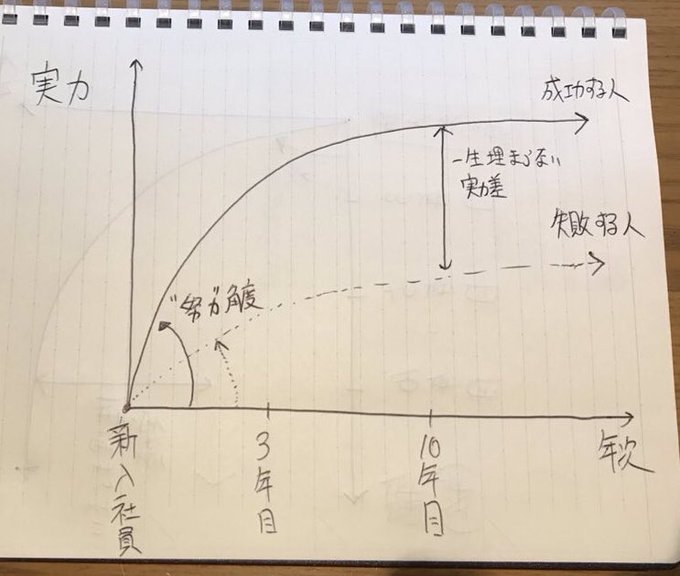 実力
成功する人
一生埋まらない
実力差
失敗する人
"努力"角度
新入社員
3年目
10年目
年次